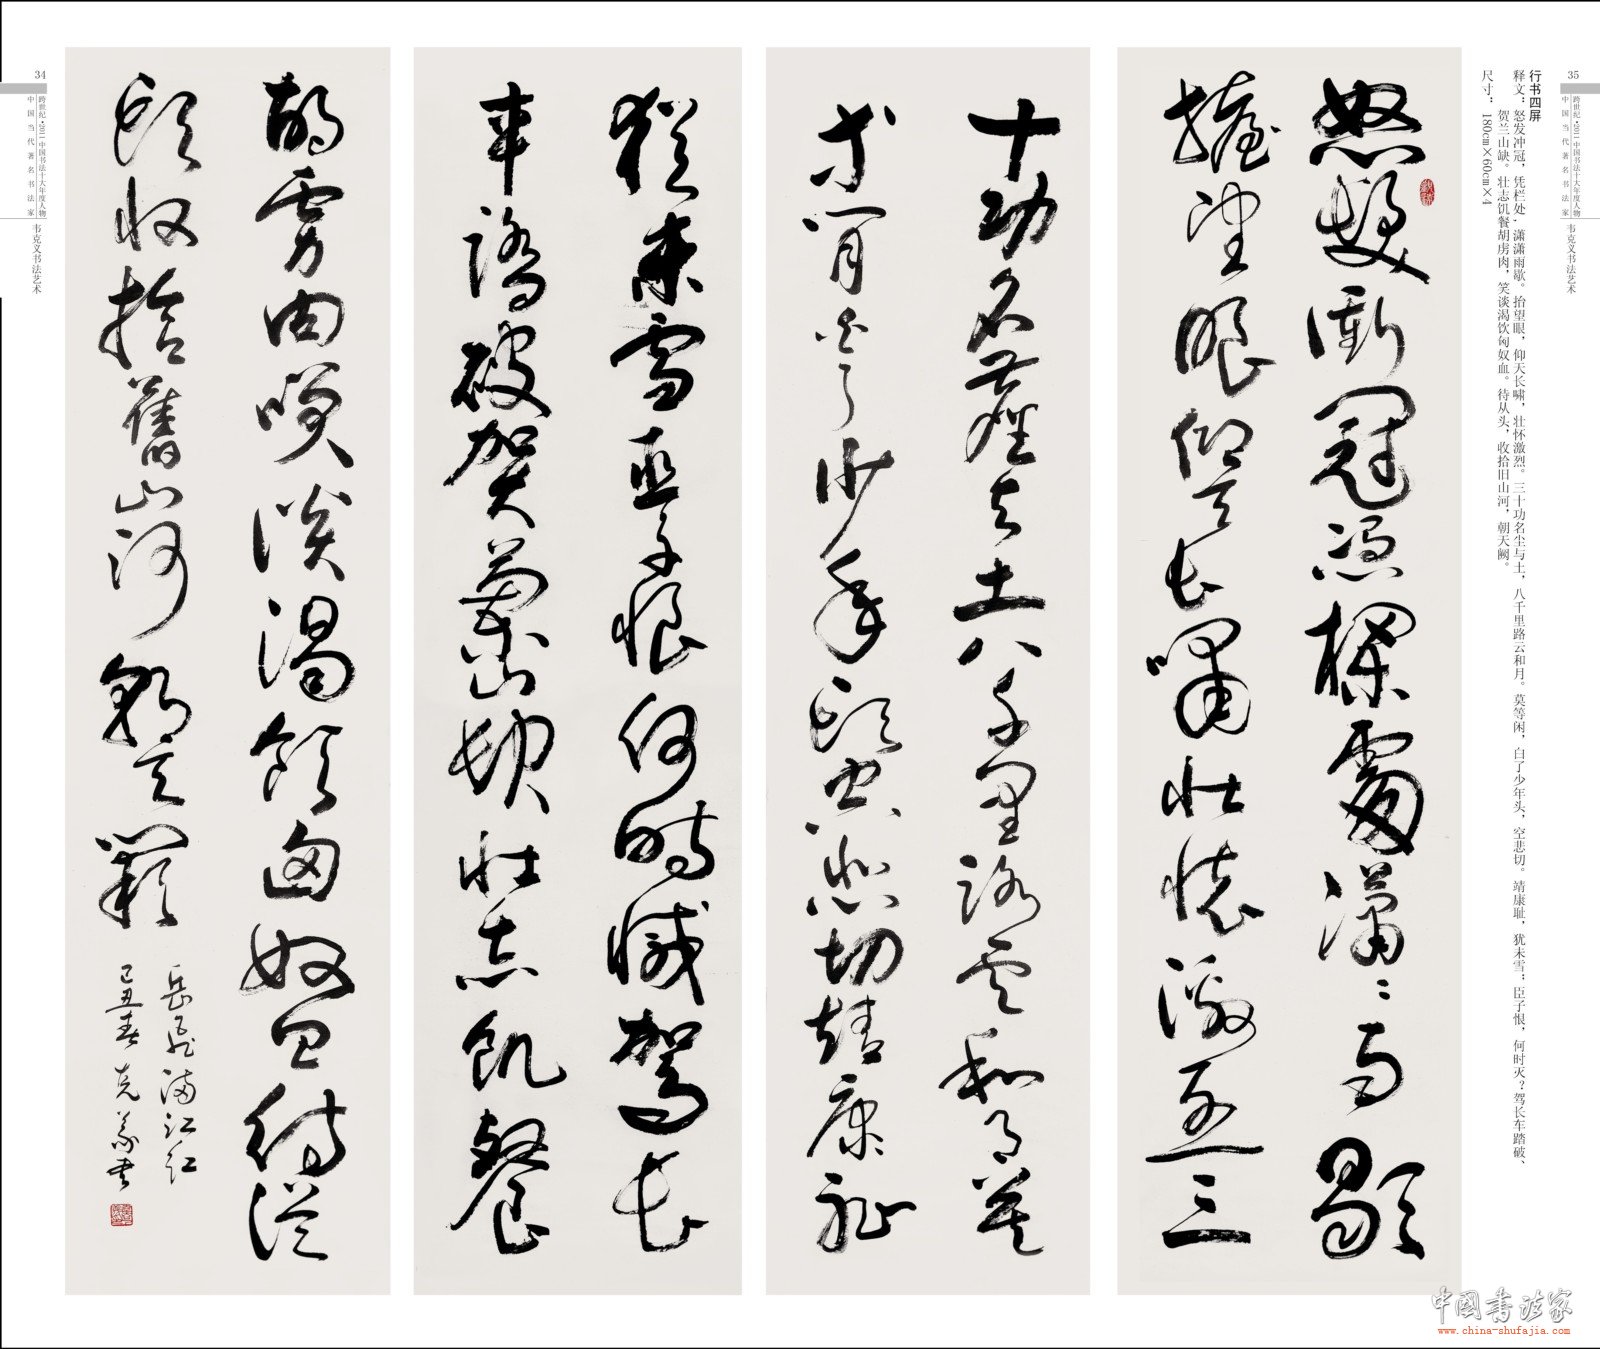 35
跨世纪·2011中国书法十大年度人物
中国当代著名书法家
韦克义书法艺术
行书四屏
释文：怒发冲冠，凭栏处，潇潇雨歇。抬望眼，仰天长啸，壮怀激烈。三十功名尘与土，八千里路云和月。莫等闲，白了少年头，空悲切。靖康耻，犹未雪；臣子恨，何时灭？驾长车踏破、
贺兰山缺。壮志饥餐胡虏肉，笑谈渴饮匈奴血。待从头，收拾旧山河，朝天阙。
尺寸：180cm×60cm×4
怒髮衝冠憑欄處瀟々雨歇
擡望眼仰天長嘯壯懷激烈三
十功名塵與土八千里路雲和月莫
等閒白了少年頭空悲切靖康恥
猶未雪臣子恨何時滅駕長
車踏破賀蘭山缺壯志飢餐
胡虜肉笑談渴飲匈奴血待從
頭收拾舊山河朝天闕
岳飛滿江紅
己丑春 克義書
34
跨世纪·2011中国书法十大年度人物
中国当代著名书法家
韦克义书法艺术
中国书法家
www.china-shufajia.com